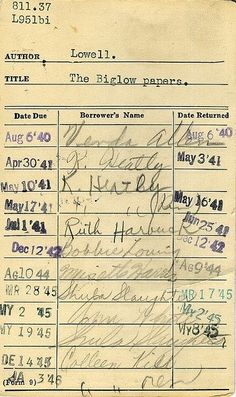 811.37
L951bi
AUTHOR Lowell.
TITLE The Biglow papers.
Date Due Borrower's Name Date Returned
Aug 6 '40 Wenda Allen Aug 6 '40
Apr 30 '41 R. Heatly May 3 '41
May 10 '41 R. Heatley
May 17 '41 " " May 16 '41
Jul 1 '41 Ruth Harbuck Jun 25 '41
Dec 12 '42 Bobbie Dec 12 '42
Ag 10 44 Ag 9 '44
MR 28 '45 Shula MR 17 '45
MY 2 '45 My 2 '45
MY 19 '45 My 3 '45
DE 14 '45 Colleen
JA 3 '46 " "
(Form 9)